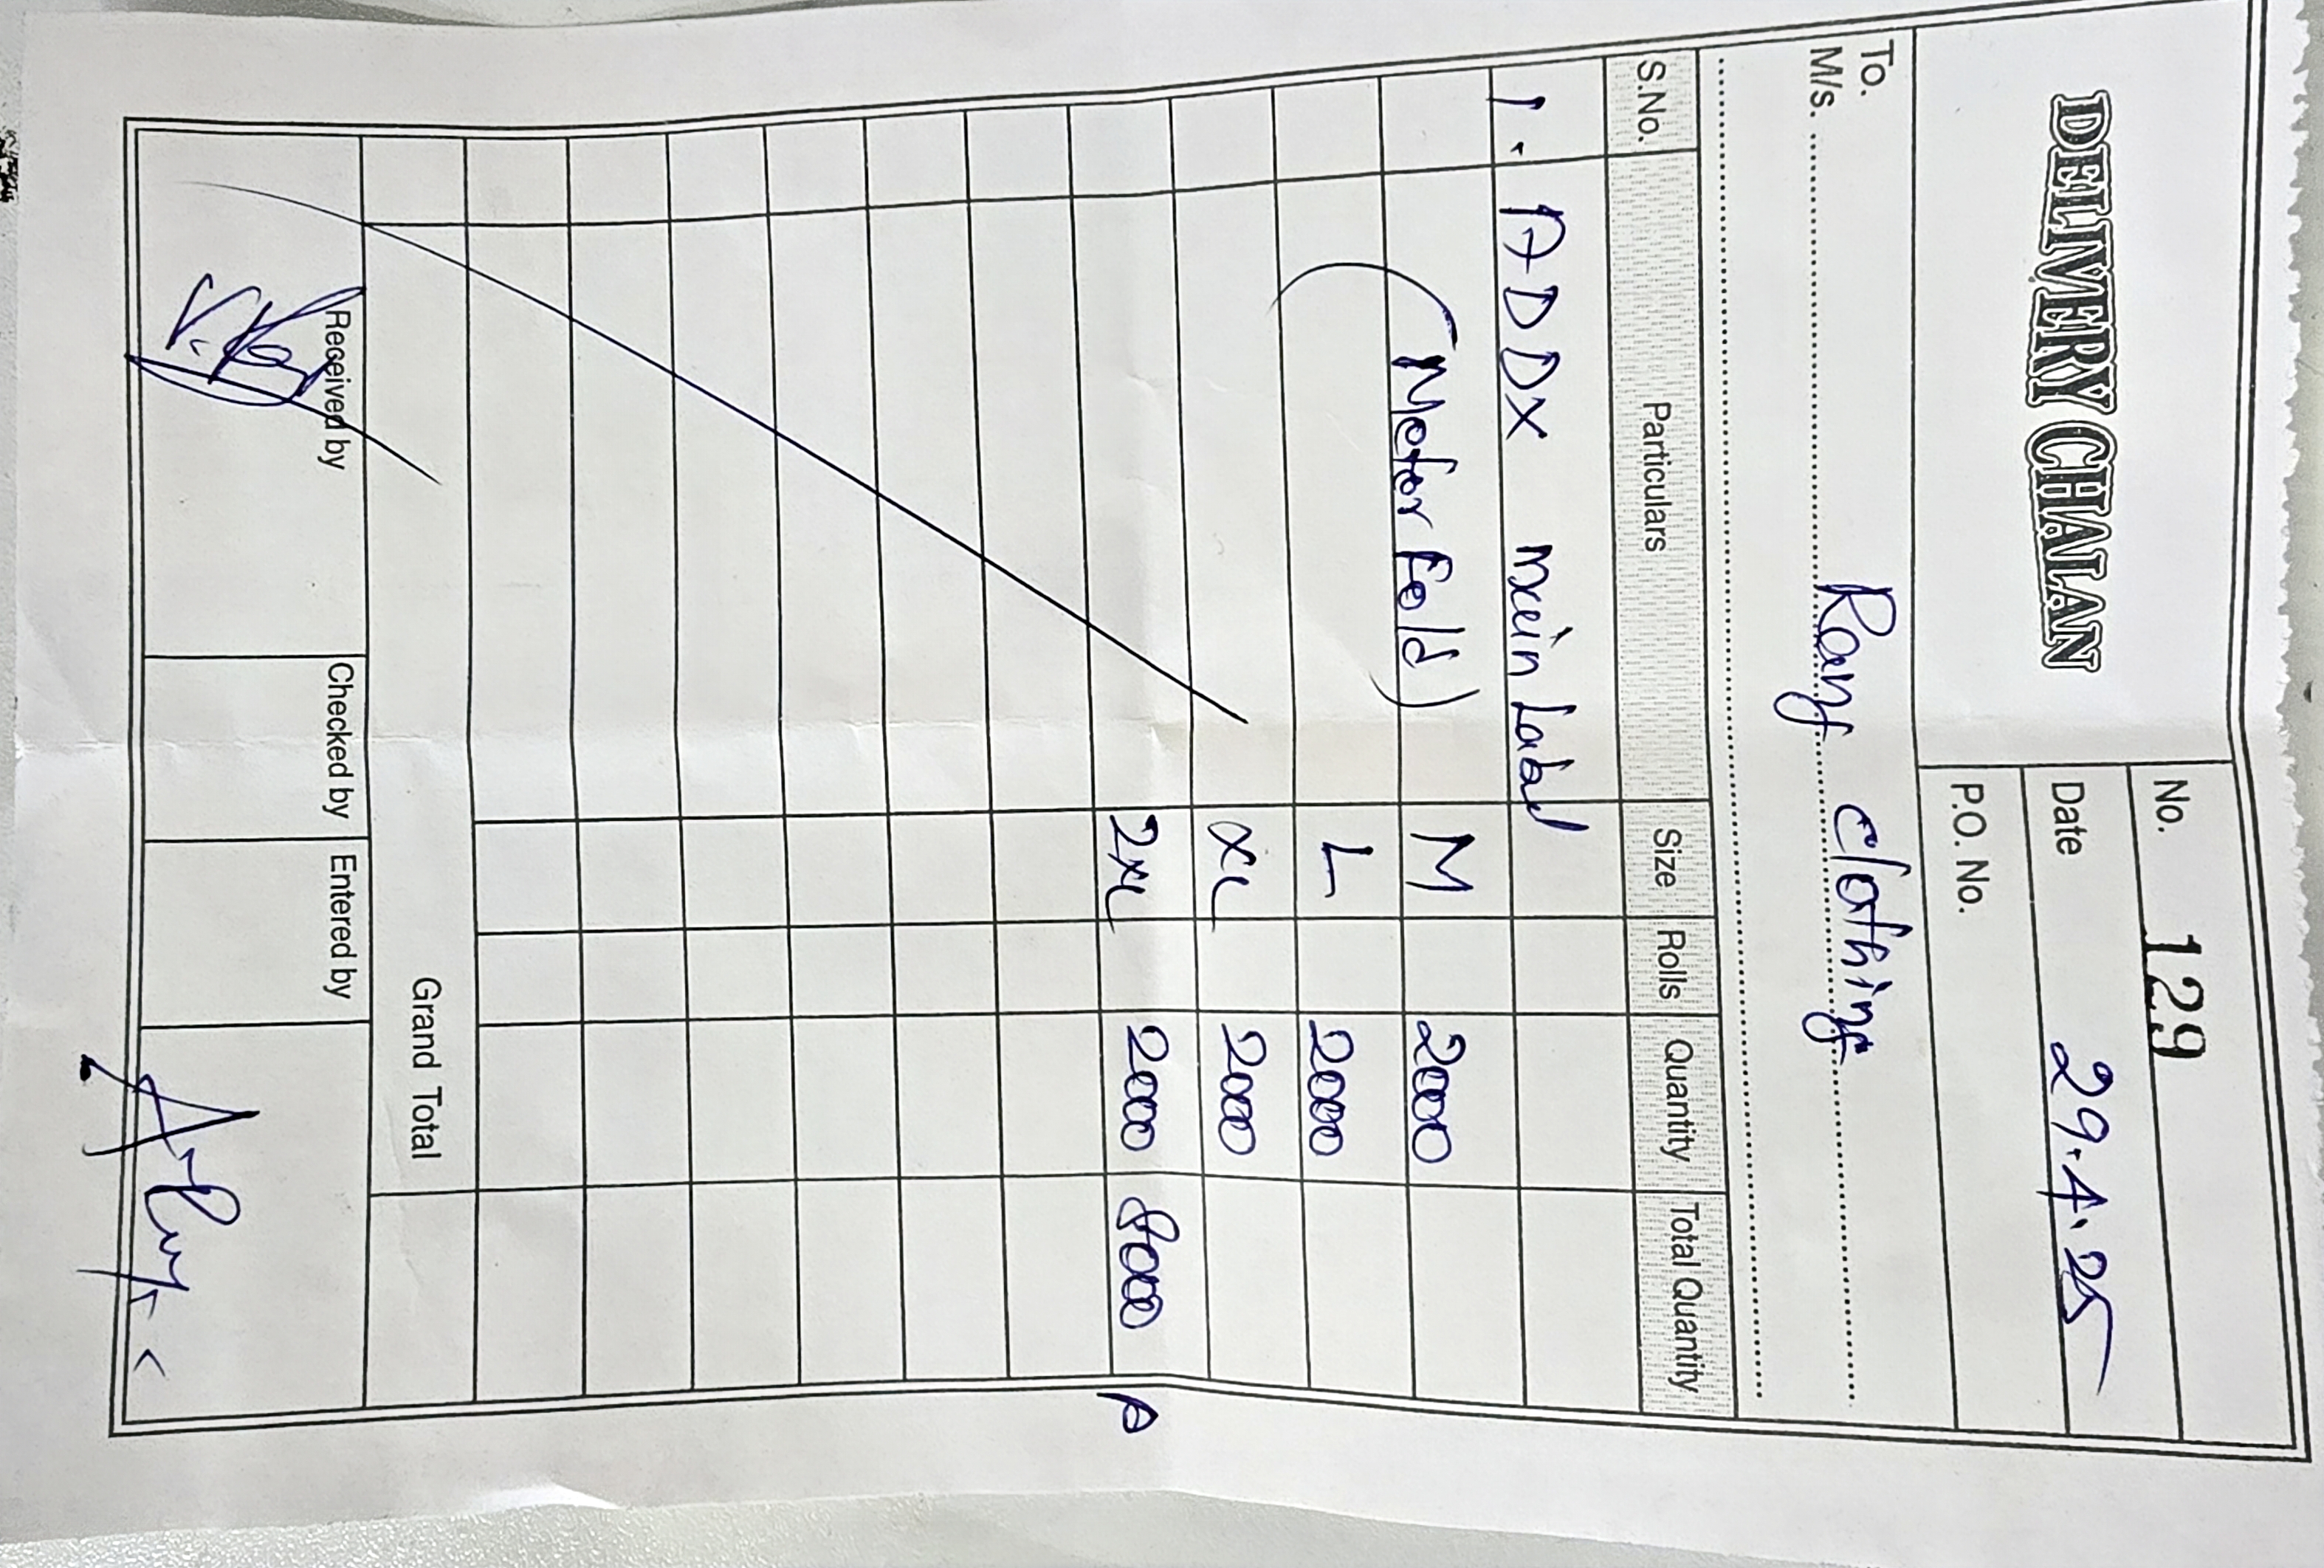 DELIVERY CHALAN
No. 129
Date 29.4.25
P.O. No.
To.
M/s. Rony clothing
S.No. Particulars Size Rolls Quantity Total Quantity
1. ADDX main Label
(Motor Fold) M 2000
L 2000
XL 2000
2XL 2000 8000 P
Grand Total
Received by Checked by Entered by